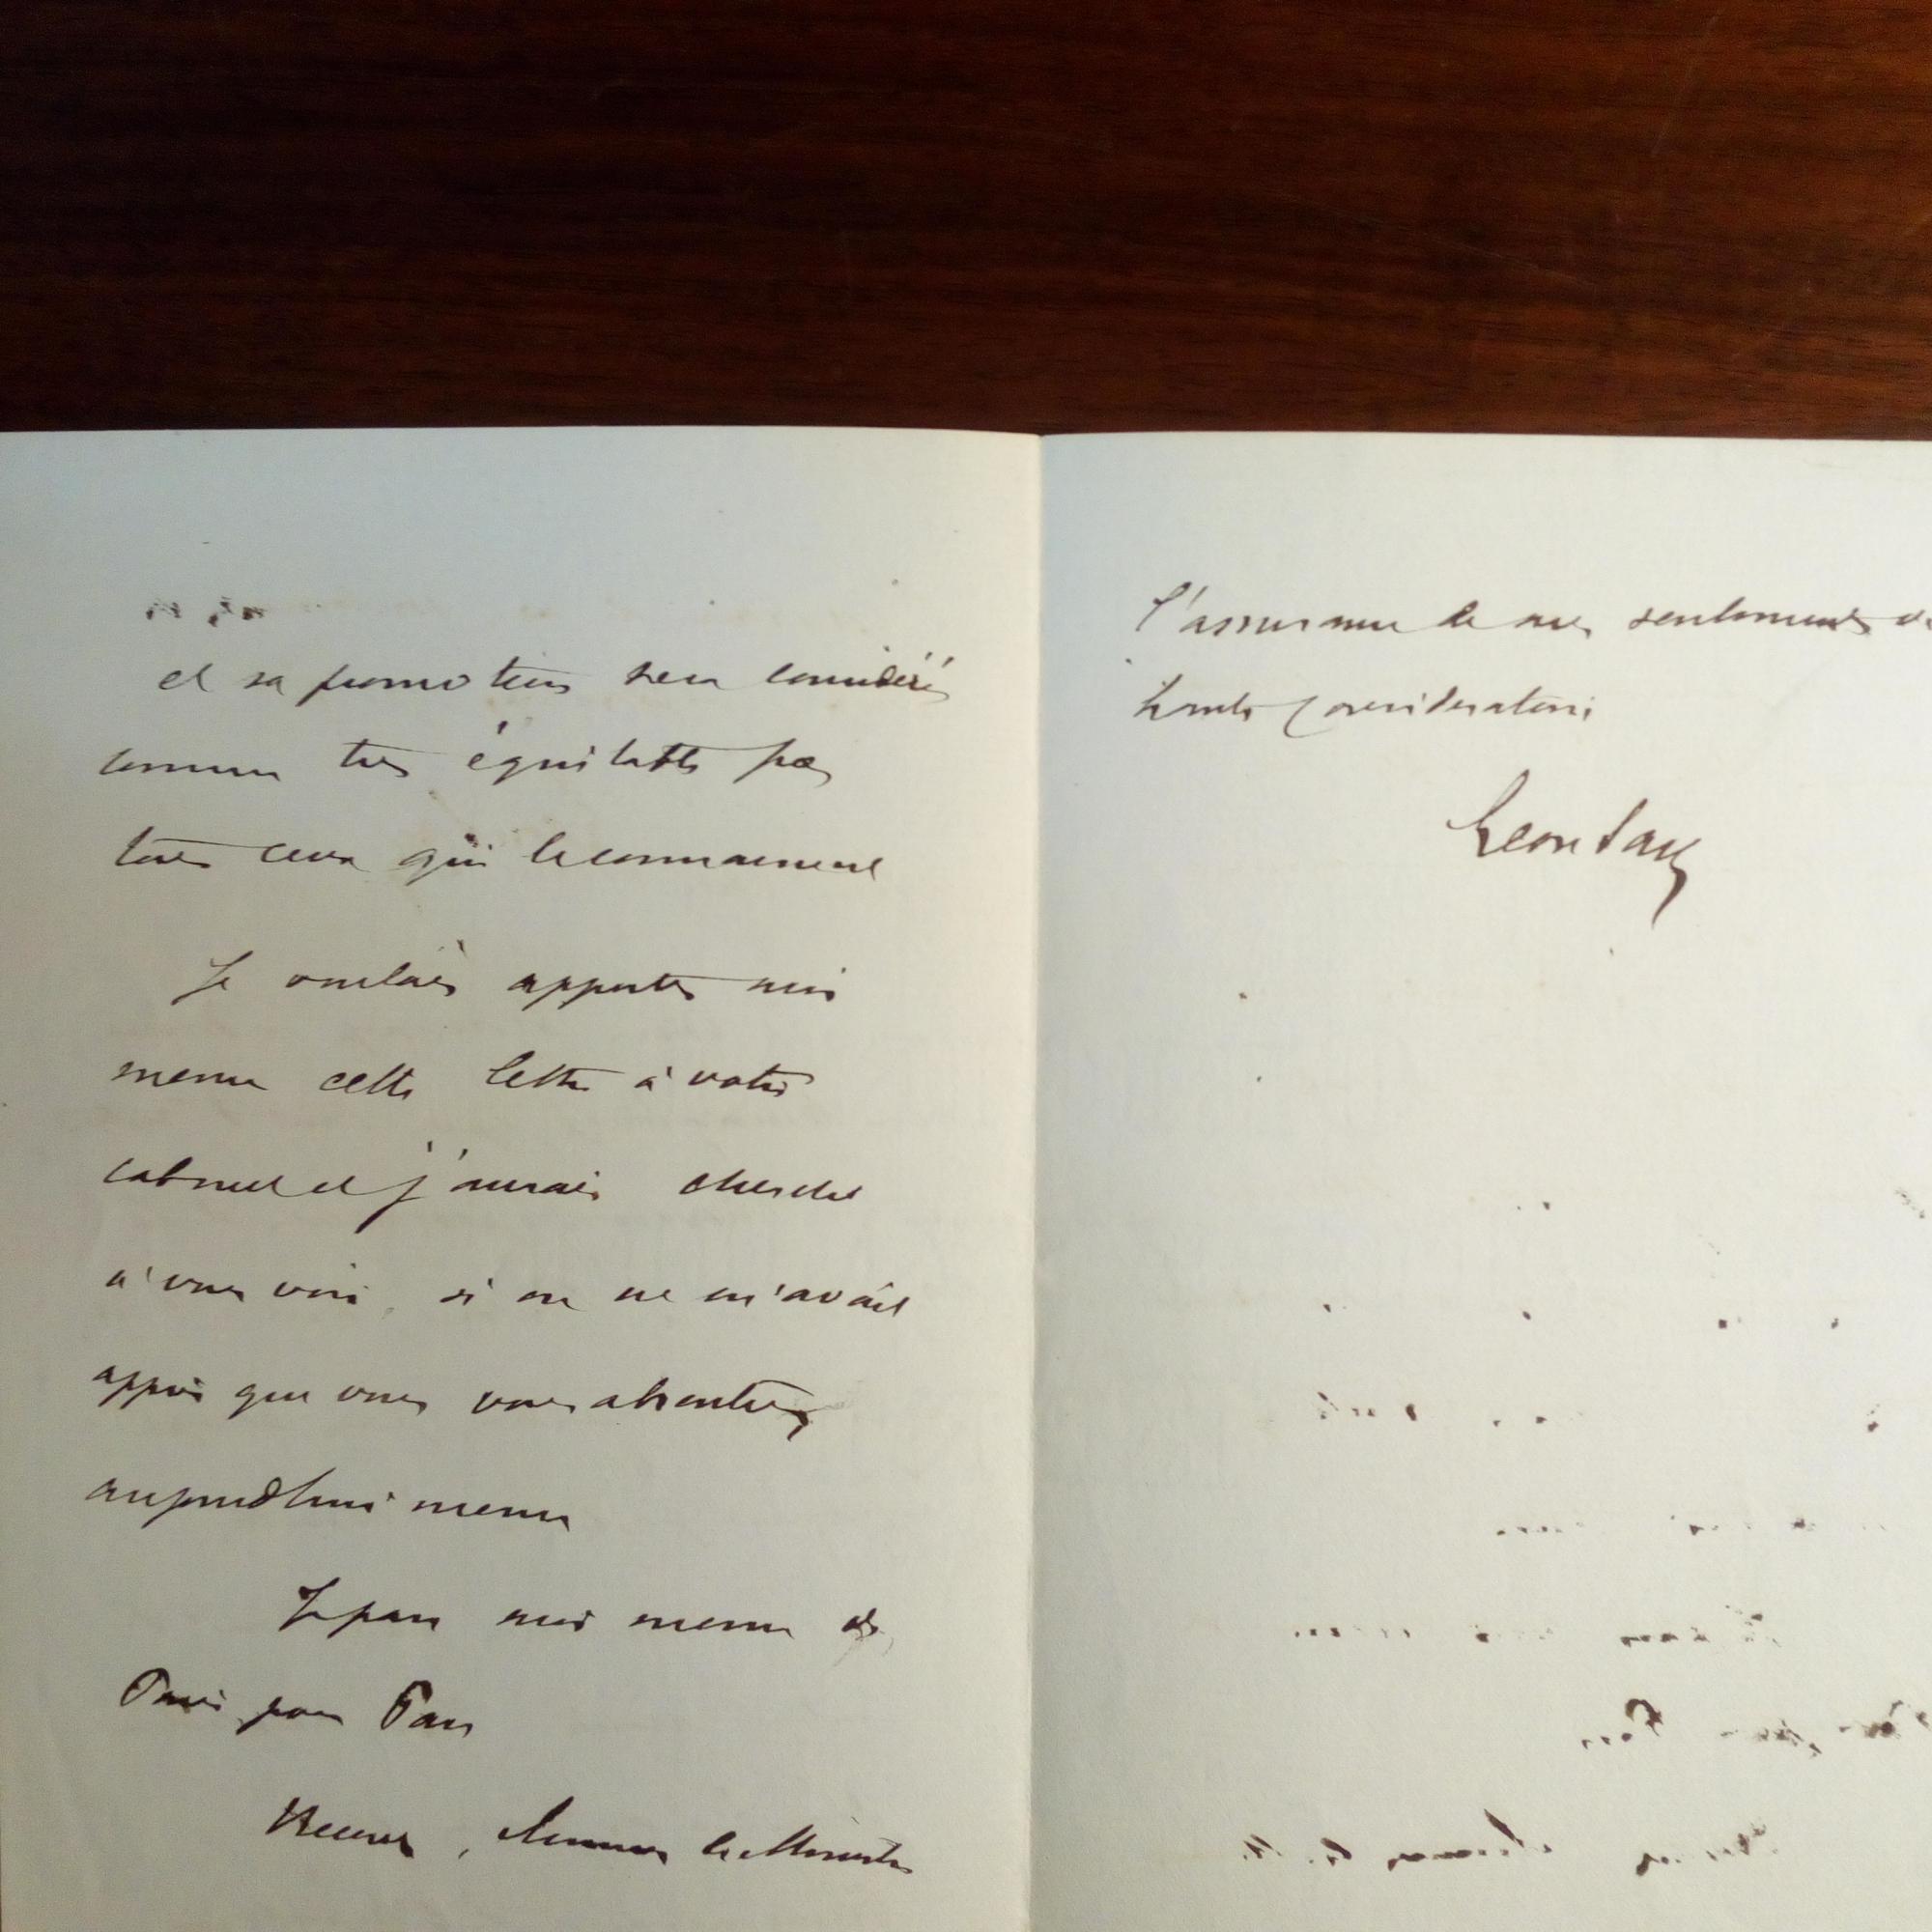 et sa promotion sera considérée
comme très équitable par
tous ceux qui le connaissent
Je voulais apporter moi
meme cette lettre à votre
cabinet et j'aurais cherché
à vous voir, si on ne m'avait
appris que vous vous absentiez
aujourd'hui meme
Je pars moi meme de
Paris pour Pau
Recevez, Monsieur le Ministre
l'assurance de mes sentiments de
haute consideration
Leon Say